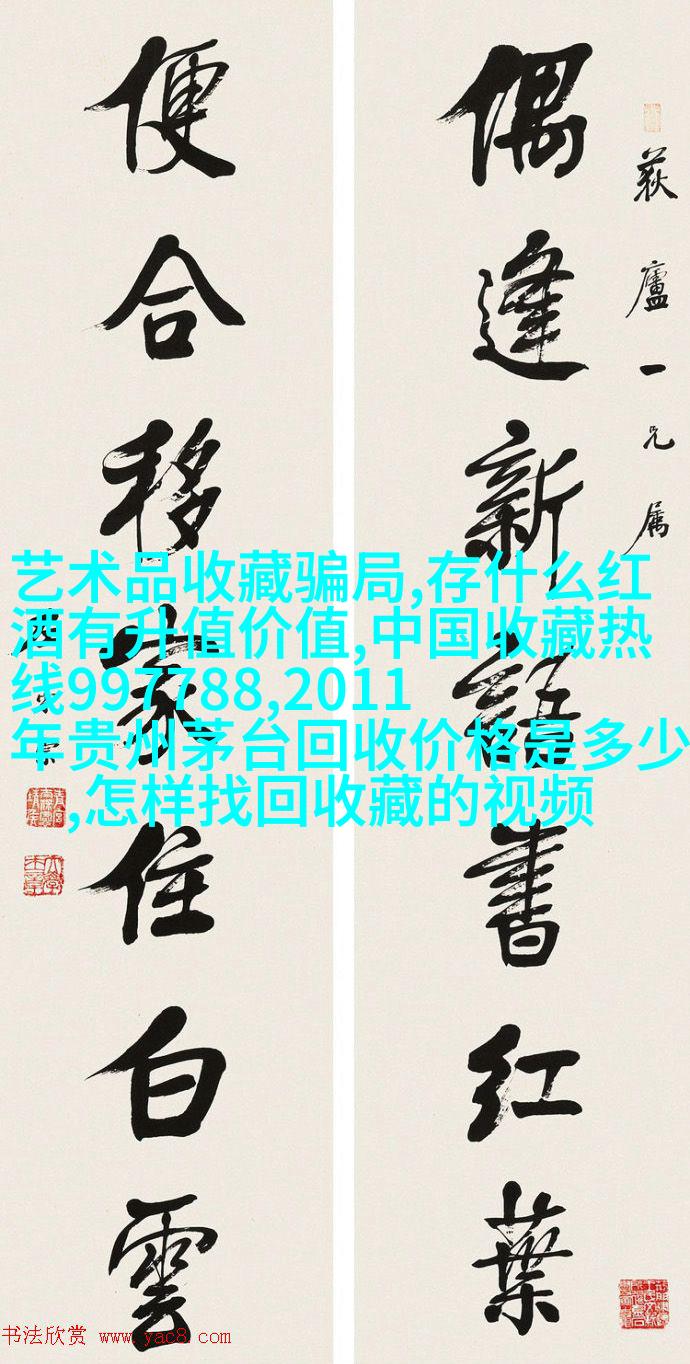 偶逢新語書红葉
荻廬一兄属
便合移家住白雲
艺术品收藏骗局,存什么红
酒有升值价值,中国收藏热
线997788,2011
年贵州茅台回收价格是多少
,怎样找回收藏的视频
书法欣赏 www.yac8.com